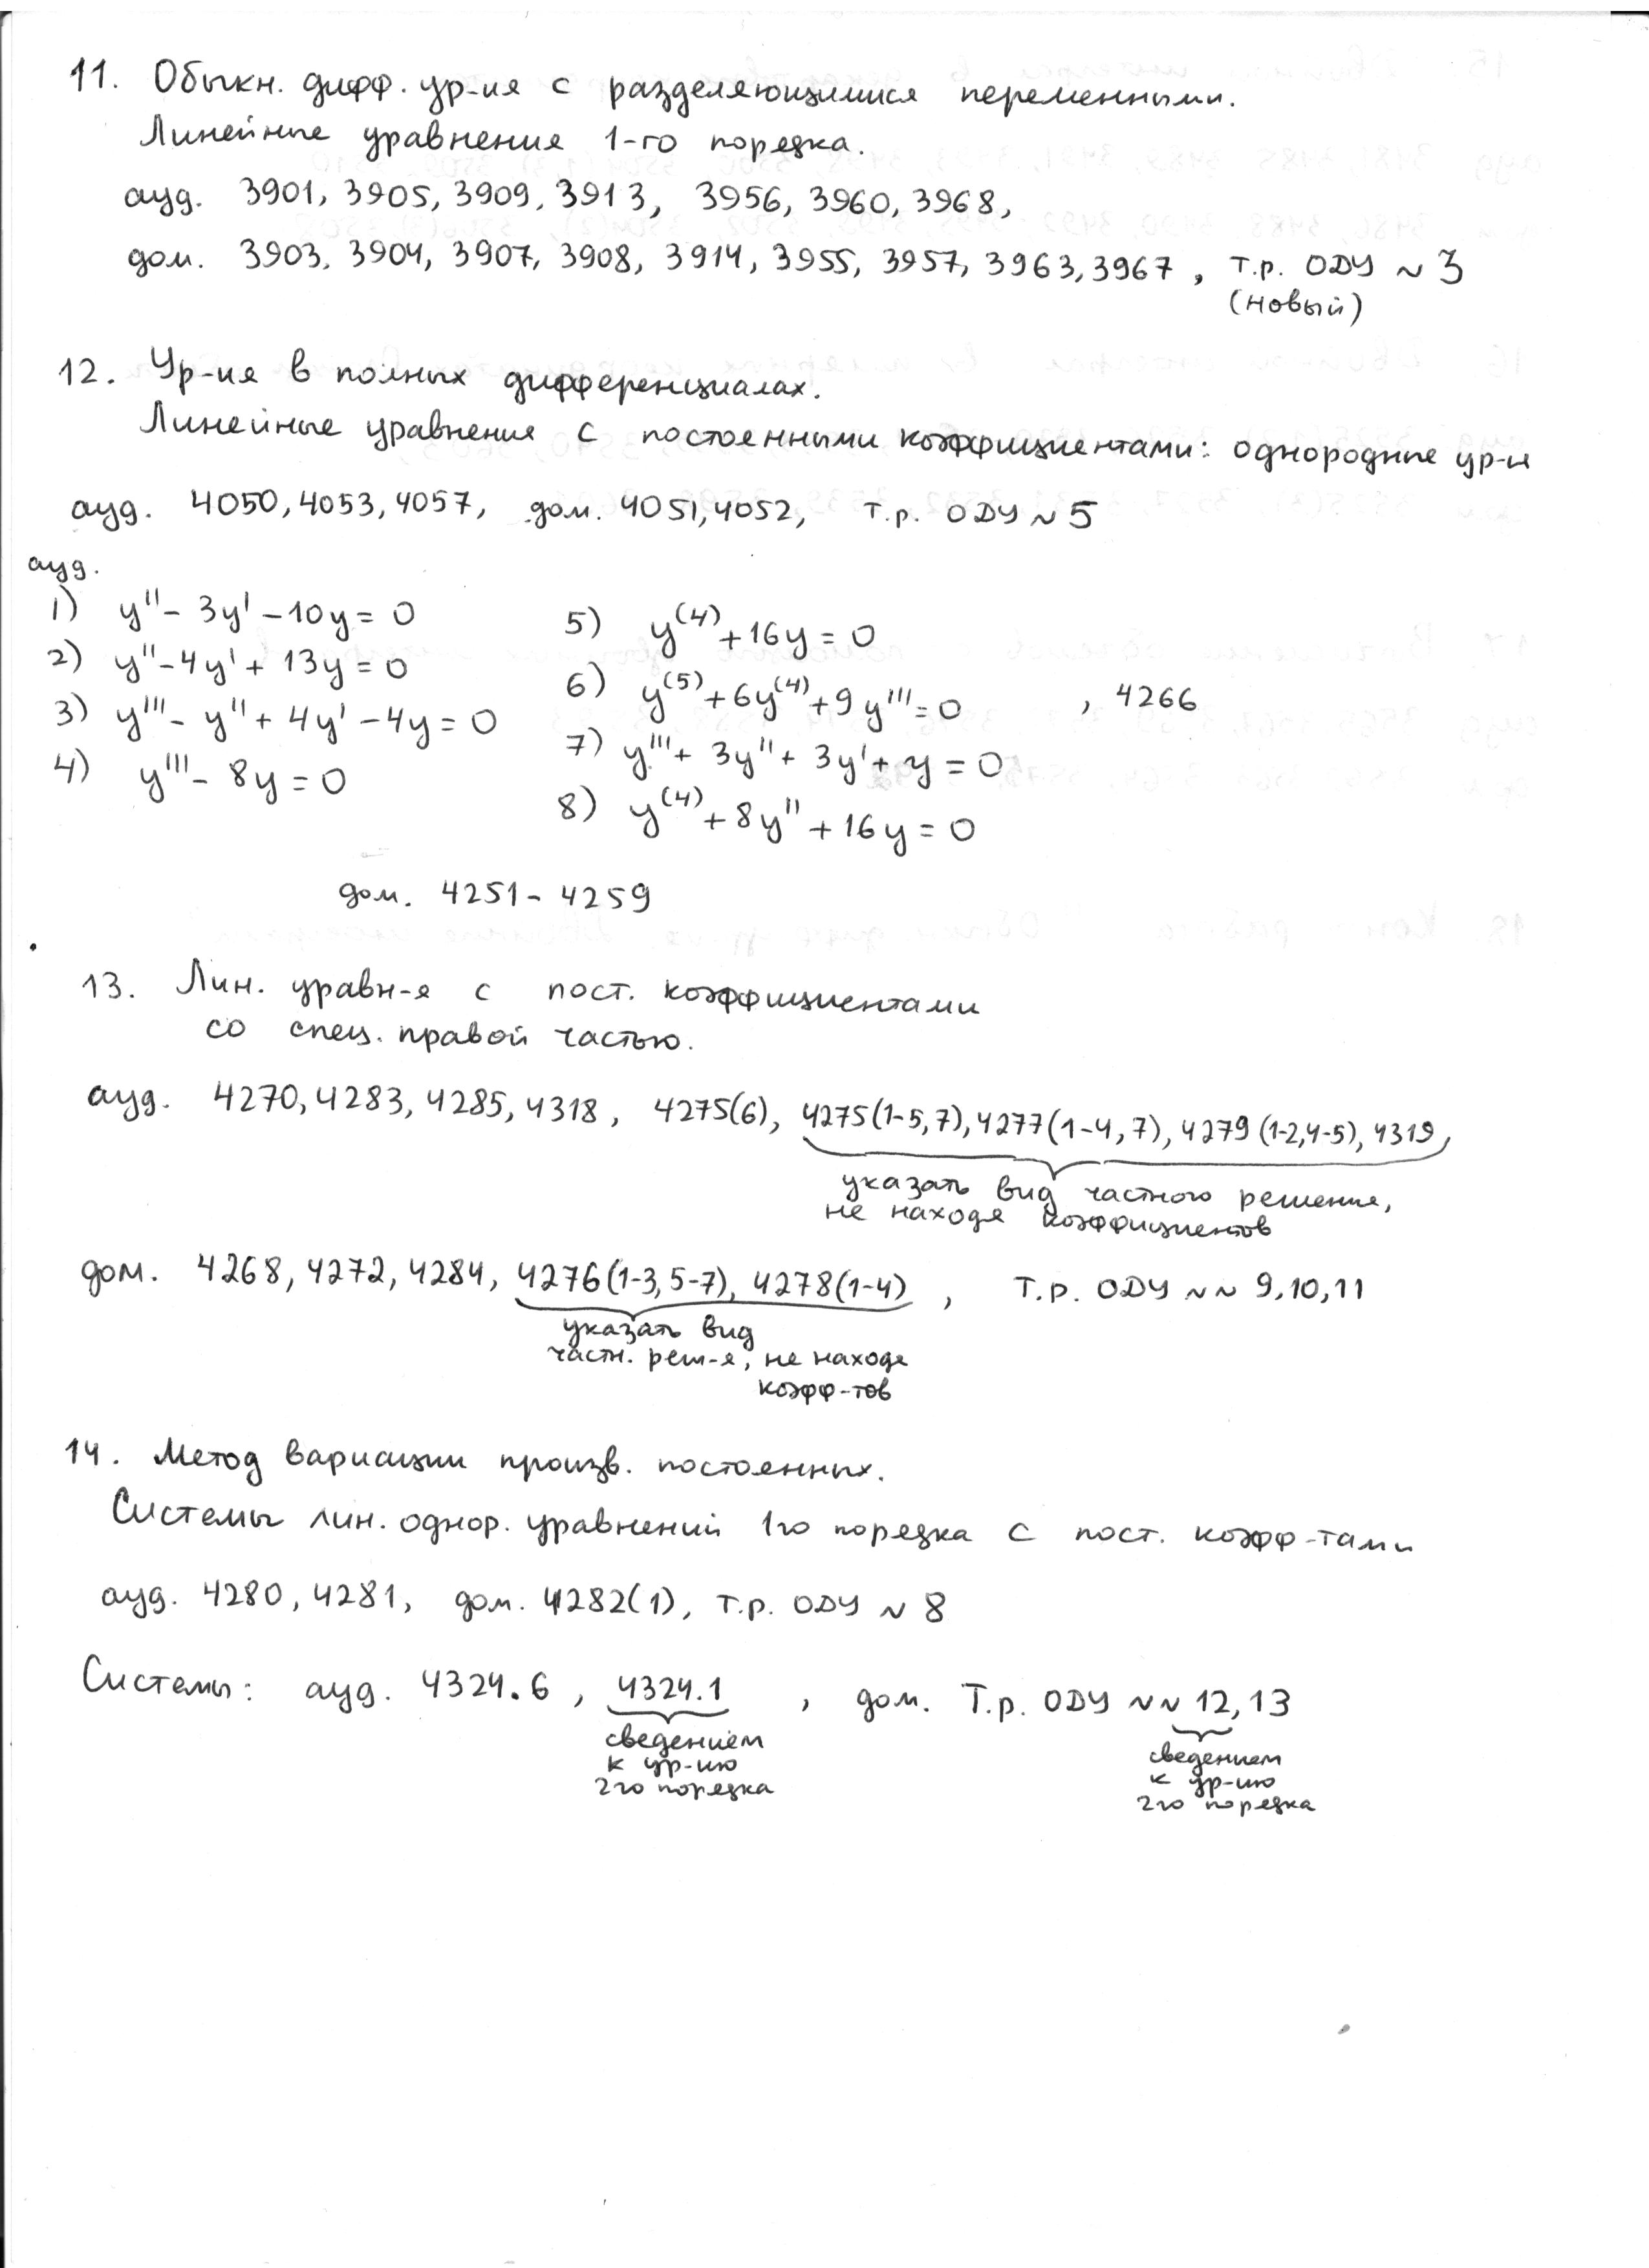 11. Обыкн. дифф. ур-ия с разделяющимися переменными.
Линейные уравнения 1-го порядка.
ауд. 3901, 3905, 3909, 3913, 3956, 3960, 3968,
дом. 3903, 3904, 3907, 3908, 3914, 3955, 3957, 3963, 3967, т.р. ОДУ № 3
(новый)
12. Ур-ия в полных дифференциалах.
Линейные уравнения с постоянными коэффициентами: однородные ур-я
ауд. 4050, 4053, 4057, дом. 4051, 4052, т.р. ОДУ № 5
ауд.
1) y'' - 3y' - 10y = 0
2) y'' - 4y' + 13y = 0
3) y''' - y'' + 4y' - 4y = 0
4) y''' - 8y = 0
5) y⁽⁴⁾ + 16y = 0
6) y⁽⁵⁾ + 6y⁽⁴⁾ + 9y''' = 0 , 4266
7) y''' + 3y'' + 3y' + y = 0
8) y⁽⁴⁾ + 8y'' + 16y = 0
дом. 4251 - 4259
13. Лин. уравн-я с пост. коэффициентами
со спец. правой частью.
ауд. 4270, 4283, 4285, 4318, 4275(6), 4275(1-5,7), 4277(1-4,7), 4279(1-2,4-5), 4319,
указать вид частного решения,
не находя коэффициентов
дом. 4268, 4272, 4284, 4276(1-3,5-7), 4278(1-4) , Т.р. ОДУ №№ 9,10,11
указать вид
частн. реш-я, не находя
коэфф-тов
14. Метод вариации произв. постоянных.
Системы лин. однор. уравнений 1го порядка с пост. коэфф-тами
ауд. 4280, 4281, дом. 4282(1), т.р. ОДУ № 8
Системы: ауд. 4324.6 , 4324.1 , дом. Т.р. ОДУ №№ 12,13
сведением
к ур-ию
2го порядка
сведением
к ур-ию
2го порядка